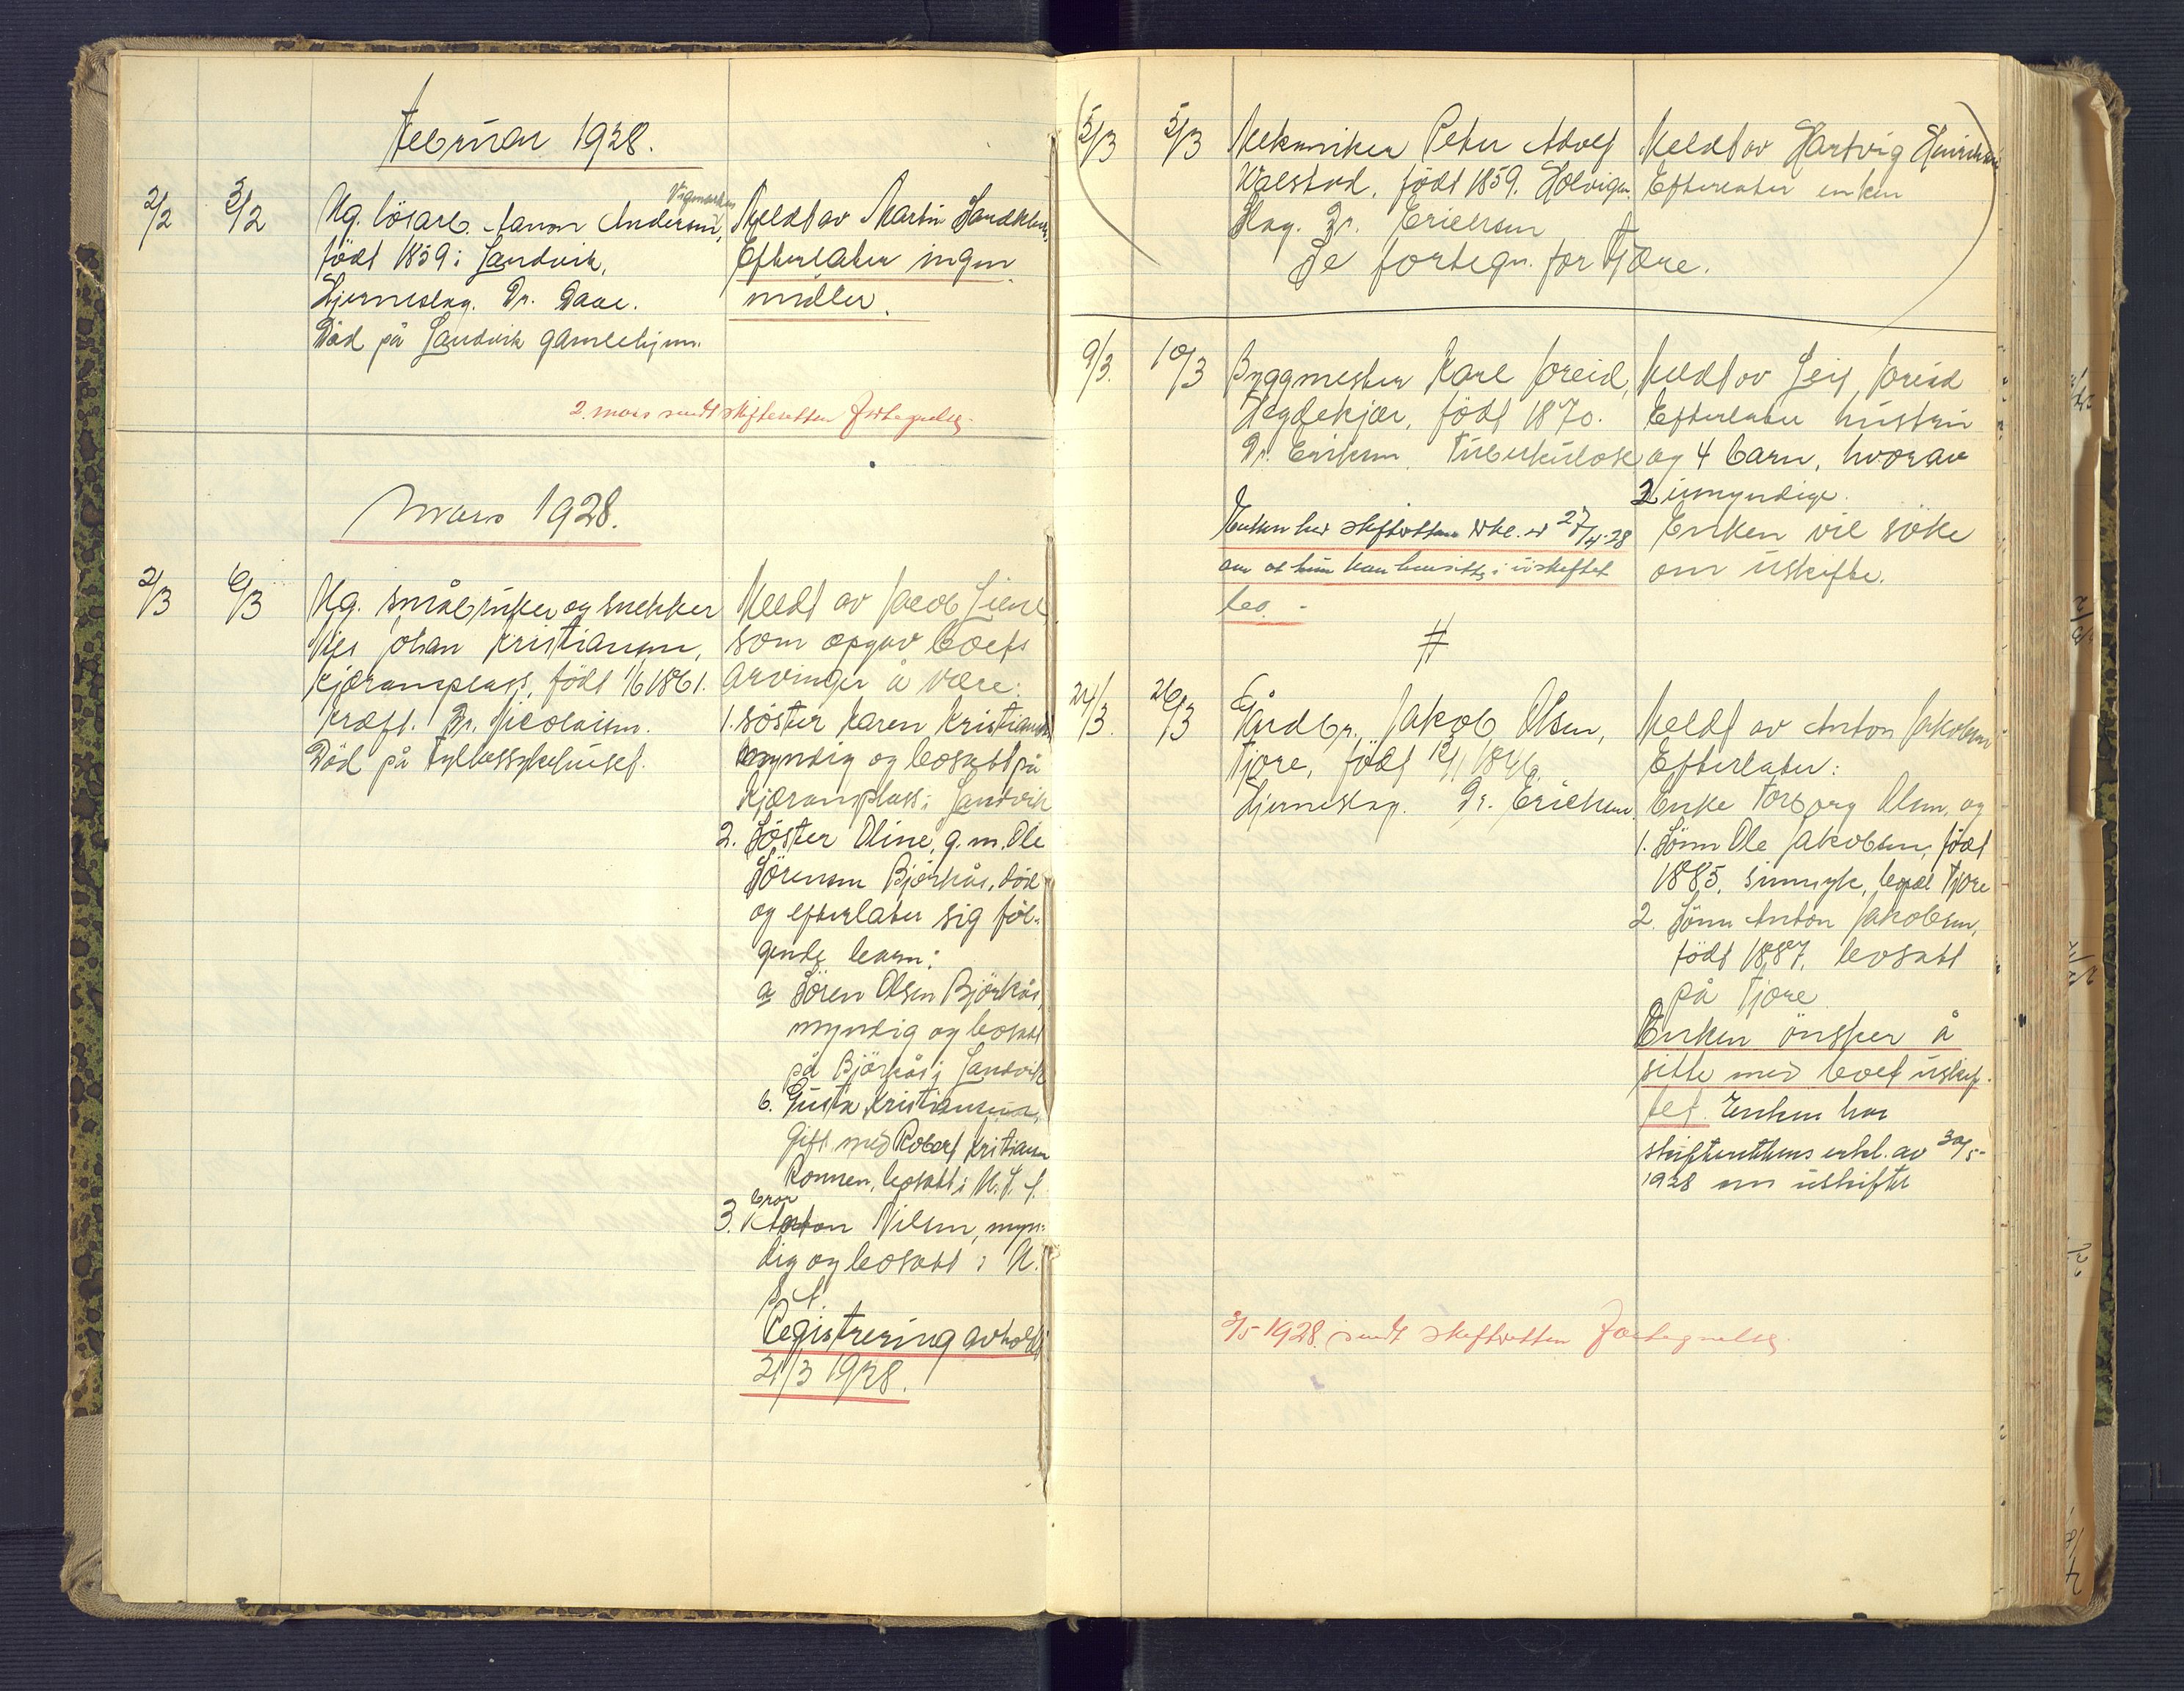 Februar 1928.
2/2
3/2
Ug. lösarb. Aanon Andersen, Vigmarken
född 1859 i Landvik,
Hjerneslag. Dr. Daae.
Död på Landvik gamlehjem.
Meldt av Martin
Efterlater ingen
midler.
2. mars sendt skifteretten Fortegnelse.
Mars 1928.
2/3
6/3
Ug. småbruker og snekker
Nils Johan Kristiansen,
Kjæramsplass, födt 1/6 1861.
Kræft. Dr. Nicolaisen.
Död på Fylkessykehuset.
Meldt av Jacob Liene
som opgav boets
arvinger å være:
1. Söster Karen Kristiansen
myndig og bosatt på
Kjæramsplass i Landvik
2. Söster Oline, g. m. Ole
Sörensen Björkås, död
og efterlater sig föl-
gende barn:
a Sören Olsen Björkås,
myndig og bosatt
på Björkås i Landvik
b. Gusta Kristiansen,
gift med Robert Kristiansen
Ronnen, bosatt i U. S. A.
3. bror Anton Nilsen, myn-
dig og bosatt i U.
S. A.
Registrering avholdt
21/3 1928.
5/3
5/3
Mekaniker Peter Adolf
Walstad, födt 1859. Holvigen.
Slag. Dr. Ericksen
Se fortegn. for Fjære.
Meldt av Hartvig Henrichsen
Efterlater enken
9/3.
10/3
Byggmester Karl Joreid,
Hegdekjær, födt 1870.
Dr. Eriksen. Tuberkulose
Enken har skifterettens erkl. av 27/4-28
om at hun kan hensitte i uskiftet
bo. -
Meldt av Leif Joreid
Efterlater hustru
og 4 barn, hvorav
2 umyndige.
Enken vil söke
om uskifte.
#
24/3.
26/3
Gårdbr. Jakob Olsen,
Fjære, födt 12/1 1846.
Hjerneslag. Dr. Ericksen.
Meldt av Anton Jakobsen
Efterlater:
Enke Torborg Olsen, og
1. Sönn Ole Jakobsen, födt
1885, sinnsyk, bopæl Fjære
2. Sönn Anton Jakobsen,
födt 1887, bosatt
på Fjære
Enken önsker å
sitte med boet uskif-
tet. Enken har
skifterettens erkl. av 30/5-
1928 om uskifte
3/5 1928. sendt skifteretten Fortegnelse.